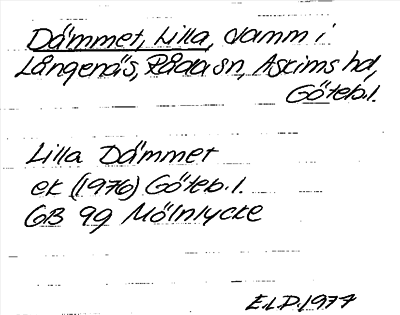 Dämmet, Lilla, damm i
Långenäs, Råda sn, Askims hd,
Göteb.l.
Lilla Dämmet
ek (1976) Göteb. l.
GB 9g Mölnlycke
E.L.D. 1977